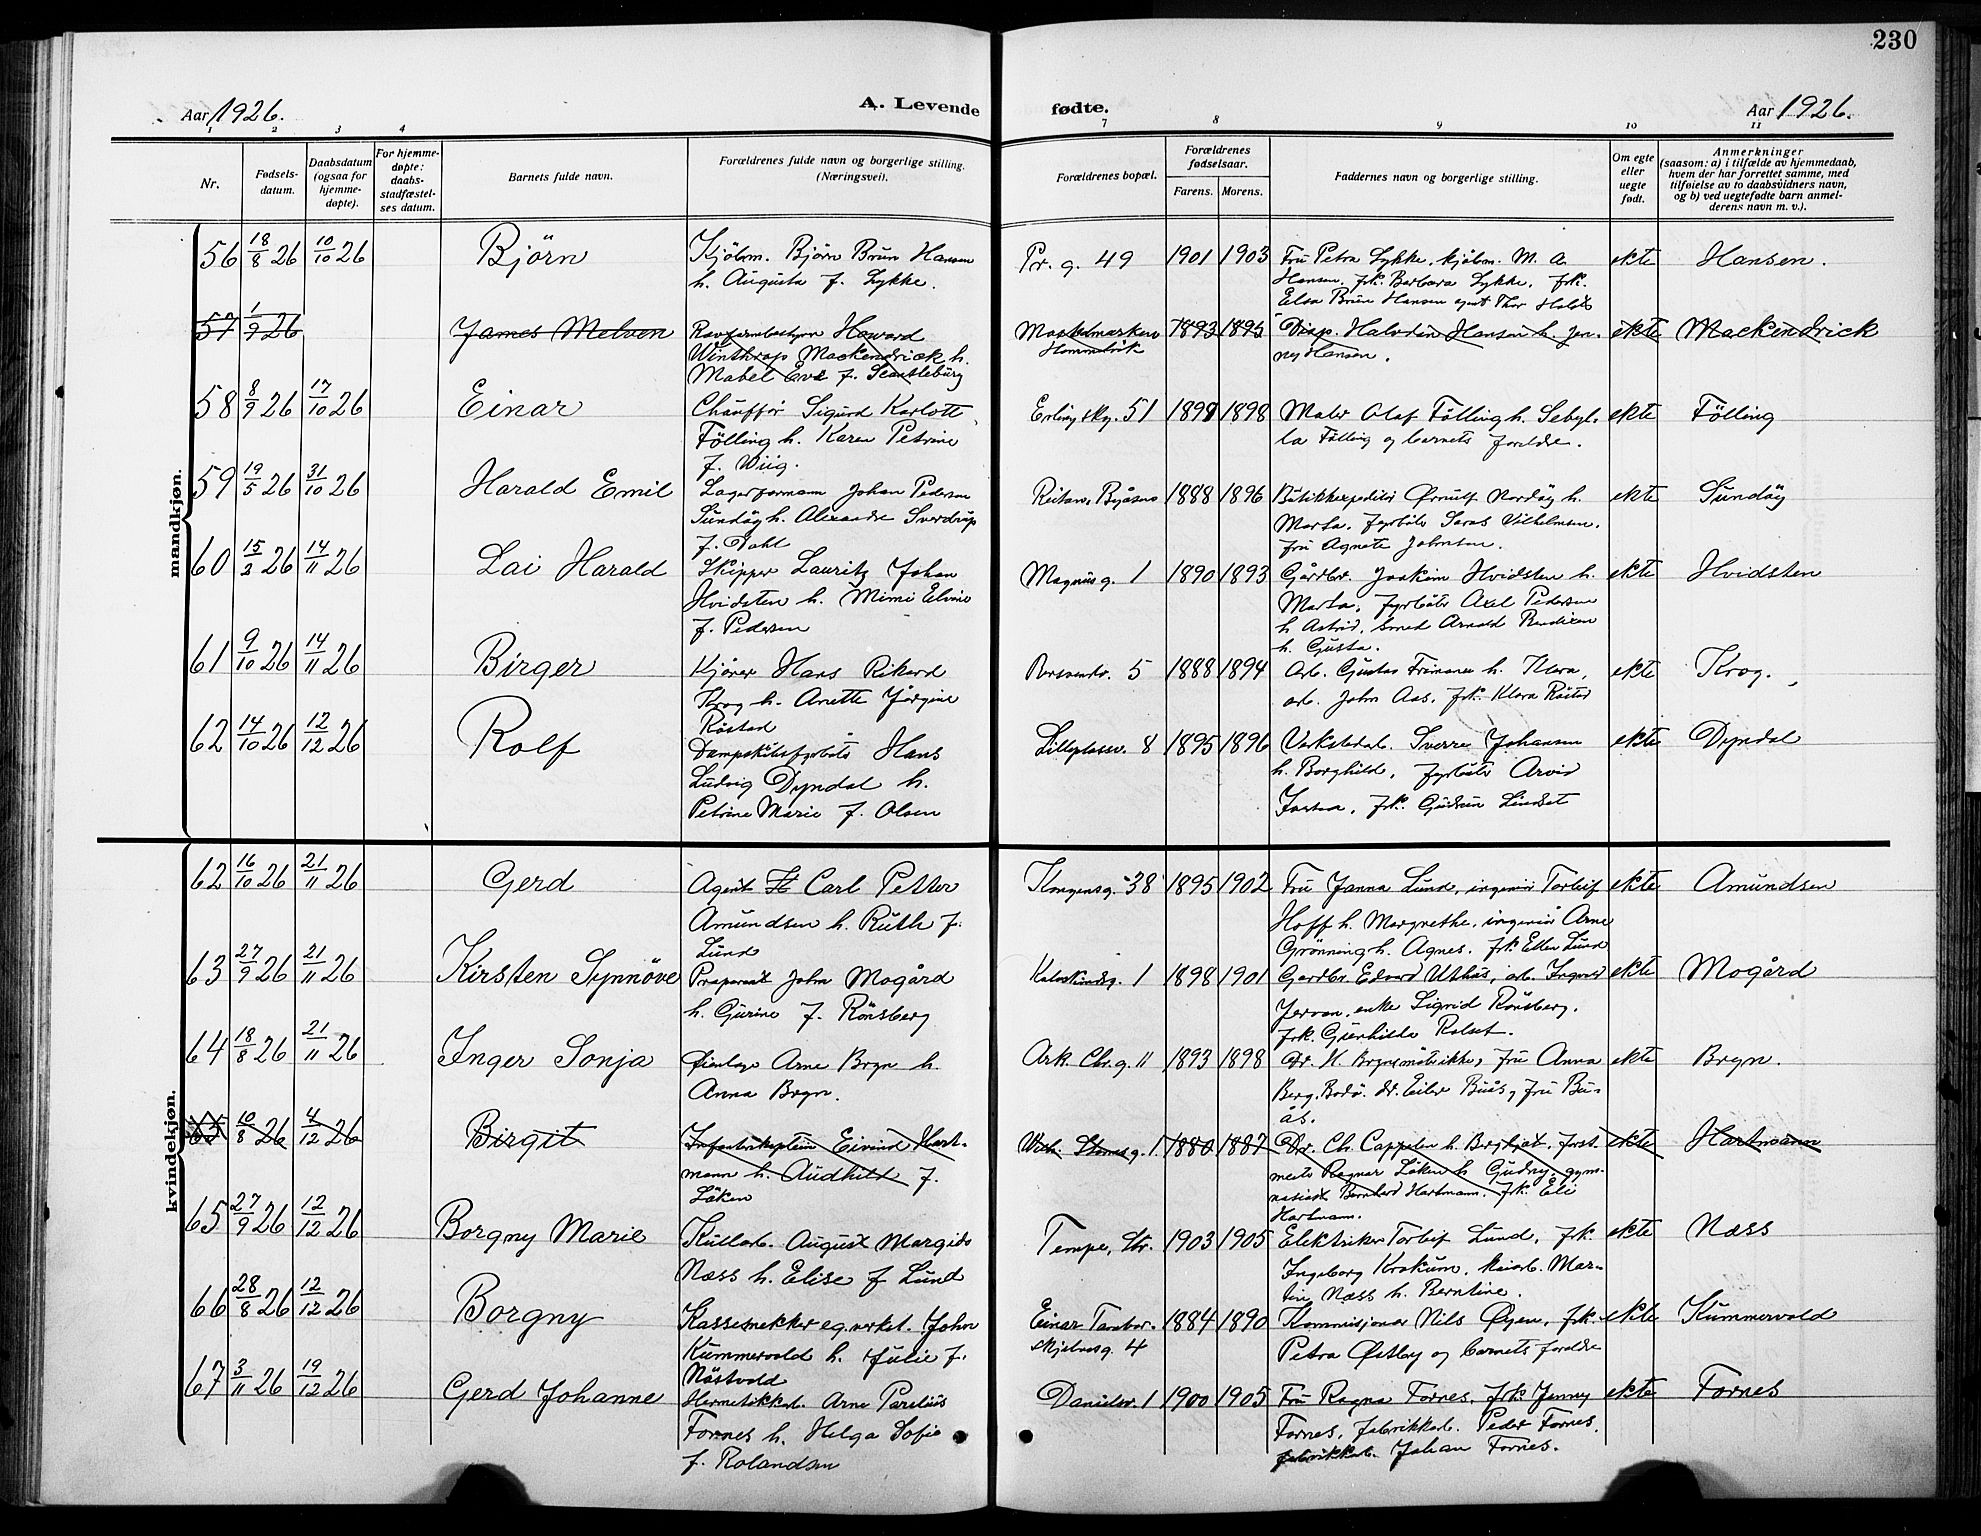 230
Aar 1926. A. Levende fødte. Aar 1926.
1 2 3 4 7 8 9 10 11
Nr.
Fødsels-
datum.
Daabsdatum
(ogsaa for
hjemme-
døpte).
For hjemme-
døpte:
daabs-
stadfæstel-
ses datum.
Barnets fulde navn.
Forældrenes fulde navn og borgerlige stilling.
(Næringsvei).
Forældrenes bopæl.
Forældrenes
fødselsaar.
Farens. Morens.
Faddernes navn og borgerlige stilling.
Om egte
eller
uegte
født.
Anmerkninger
(saasom: a) i tilfælde av hjemmedaab,
hvem der har forrettet samme, med
tilføielse av to daabsvidners navn,
og b) ved uegtefødte barn anmel-
derens navn m. v.).
mandkjøn.
56 18/8 26 10/10 26 Björn
Kjöbm. Björn Brun Hansen
h. Augusta f. Lykke.
Pr. g. 49 1901 1903
Fru Petra Lykke, kjöbm. M. A.
Hansen, frk. Barbara Lykke, frk.
Elsa Brun Hansen Thor
ekte Hansen.
57 1/9 26 James Melven
Howard
Winthrop Mackendrick h.
Mabel Eva f. Scantlebury
Hommelvik 1893 1895
Disp. Halvdan Hansen h. Jen-
ny Hansen.
ekte Mackendrick
58 8/9 26 17/10 26 Einar
Chauffør Sigurd Karlott
Tölling h. Karen Petrine
f. Wiig.
Erling skg. 51 1897 1898
Maler Olaf Tölling h. Sebyl-
la Tölling og barnets foreldre.
ekte Tölling
59 19/5 26 31/10 26 Harald Emil
Lagerformann Johan Pedersen
Sundöy h. Alexandra Sverdrup
f. Dahl
Byåsen 1888 1896
Ørnulf Nordöy h.
Marta, fyrböter Vilhelmsen.
fru Agnete Johnsen.
ekte Sundöy
60 15/2 26 14/11 26 Lai Harald
Skipper Lauritz Johan
Hvidsten h. Mimi Elvine
f. Pedersen
Magnusg. 1 1890 1893
Gårdbr. Joakim Hvidsten h.
Marta, fyrböter Axel Pedersen
h. Astrid, smed Arnold Bendixen
h. Gusta.
ekte Hvidsten
61 9/10 26 14/11 26 Birger
Kjörer Hans Rikard
Krog h. Anette Jörgine
Röstad
5 1888 1894
Arb. Gustav h. Klara,
arb. John Aas, frk. Klara Röstad
ekte Krog.
62 14/10 26 12/12 26 Rolf
Dampskibsfyrböter Hans
Ludvig Dyndal h.
Petrine Marie f. Olsen
Lilleplassv. 8 1895 1896
Verkstedarb. Sverre Johansen
h. Borghild, fyrböter Arvid
frk. Gudrun Lindset
ekte Dyndal
kvindekjøn.
62 16/10 26 21/11 26 Gerd
Agent Carl Petter
Amundsen h. Ruth f.
Lund
Kongensg. 38 1895 1902
Fru Janna Lund, ingeniör Torleif
Hoff h. Margrethe, ingeniör Arne
Grönning h. Agnes. frk. Ellen Lund
ekte Amundsen
63 27/9 26 21/11 26 Kirsten Synnöve
Preparant John Mogård
h. Gurine f. Rönsberg
1 1898 1901
Gardbr. Edvard Uthus, arb. Ingvald
Jervan, enke Sigrid Rönsberg.
frk. Gunhilda Rolset.
ekte Mogård
64 18/8 26 21/11 26 Inger Sonja
Øienlæge Arne Bryn h.
Anna Bryn.
Ark. Chr. g. 11 1893 1898
Dr. H. fru Anna
Berg, Bodö. dr. Eiler Buås, fru Bu-
ås.
ekte Bryn.
65 10/8 26 4/12 26 Birgit
Infanterikaptein Eivind Hart-
mann h. Audhild f.
Löken
1 1880 1887
Dr. Ch. Cappelen h. Bergljot, forst-
mester Ragnar Löken h. Gudny. gym-
nasiast Bernhard Hartmann. frk. Eli
Hartmann.
ekte Hartmann
65 27/9 26 12/12 26 Borgny Marie
Kullarb. August Margido
Næss h. Elise f Lund
Tempe, Str. 1903 1905
Elektriker Torleif Lund, frk.
Ingeborg Krokum, Mar-
tin Næss h. Berntine.
ekte Næss
66 28/8 26 12/12 26 Borgny
Kassesnekker eg. verkst. John
Kummervold h. Julie f.
Nöstvold
Einar Tambar-
skjelvesg. 4 1884 1890
Kommisjonær Nils Øyen, frk.
Petra Østby og barnets foreldre
ekte Kummervold
67 3/11 26 19/12 26 Gerd Johanne
Hermetikkarb. Arne Parelius
Fornes h. Helga Sofie
f. Rolandsen
Danielsv. 1 1900 1905
Fru Ragna Fornes, frk. Jenny
Fornes, fabrikkarb. Peder Fornes,
fabrikkarb. Johan Fornes.
ekte Fornes